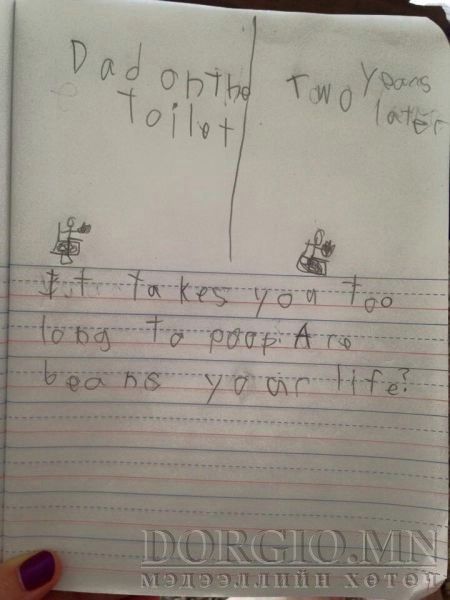 Dad on the
toilet
Two years
later
It takes you too
long to poop. Are
beans your life?
DORGIO.MN
МЭДЭЭЛЛИЙН ХӨТӨЧ